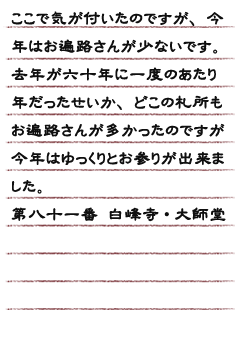 ここで気が付いたのですが、今
年はお遍路さんが少ないです。
去年が六十年に一度のあたり
年だったせいか、どこの札所も
お遍路さんが多かったのですが
今年はゆっくりとお参りが出来ま
した。
第八十一番 白峰寺・大師堂